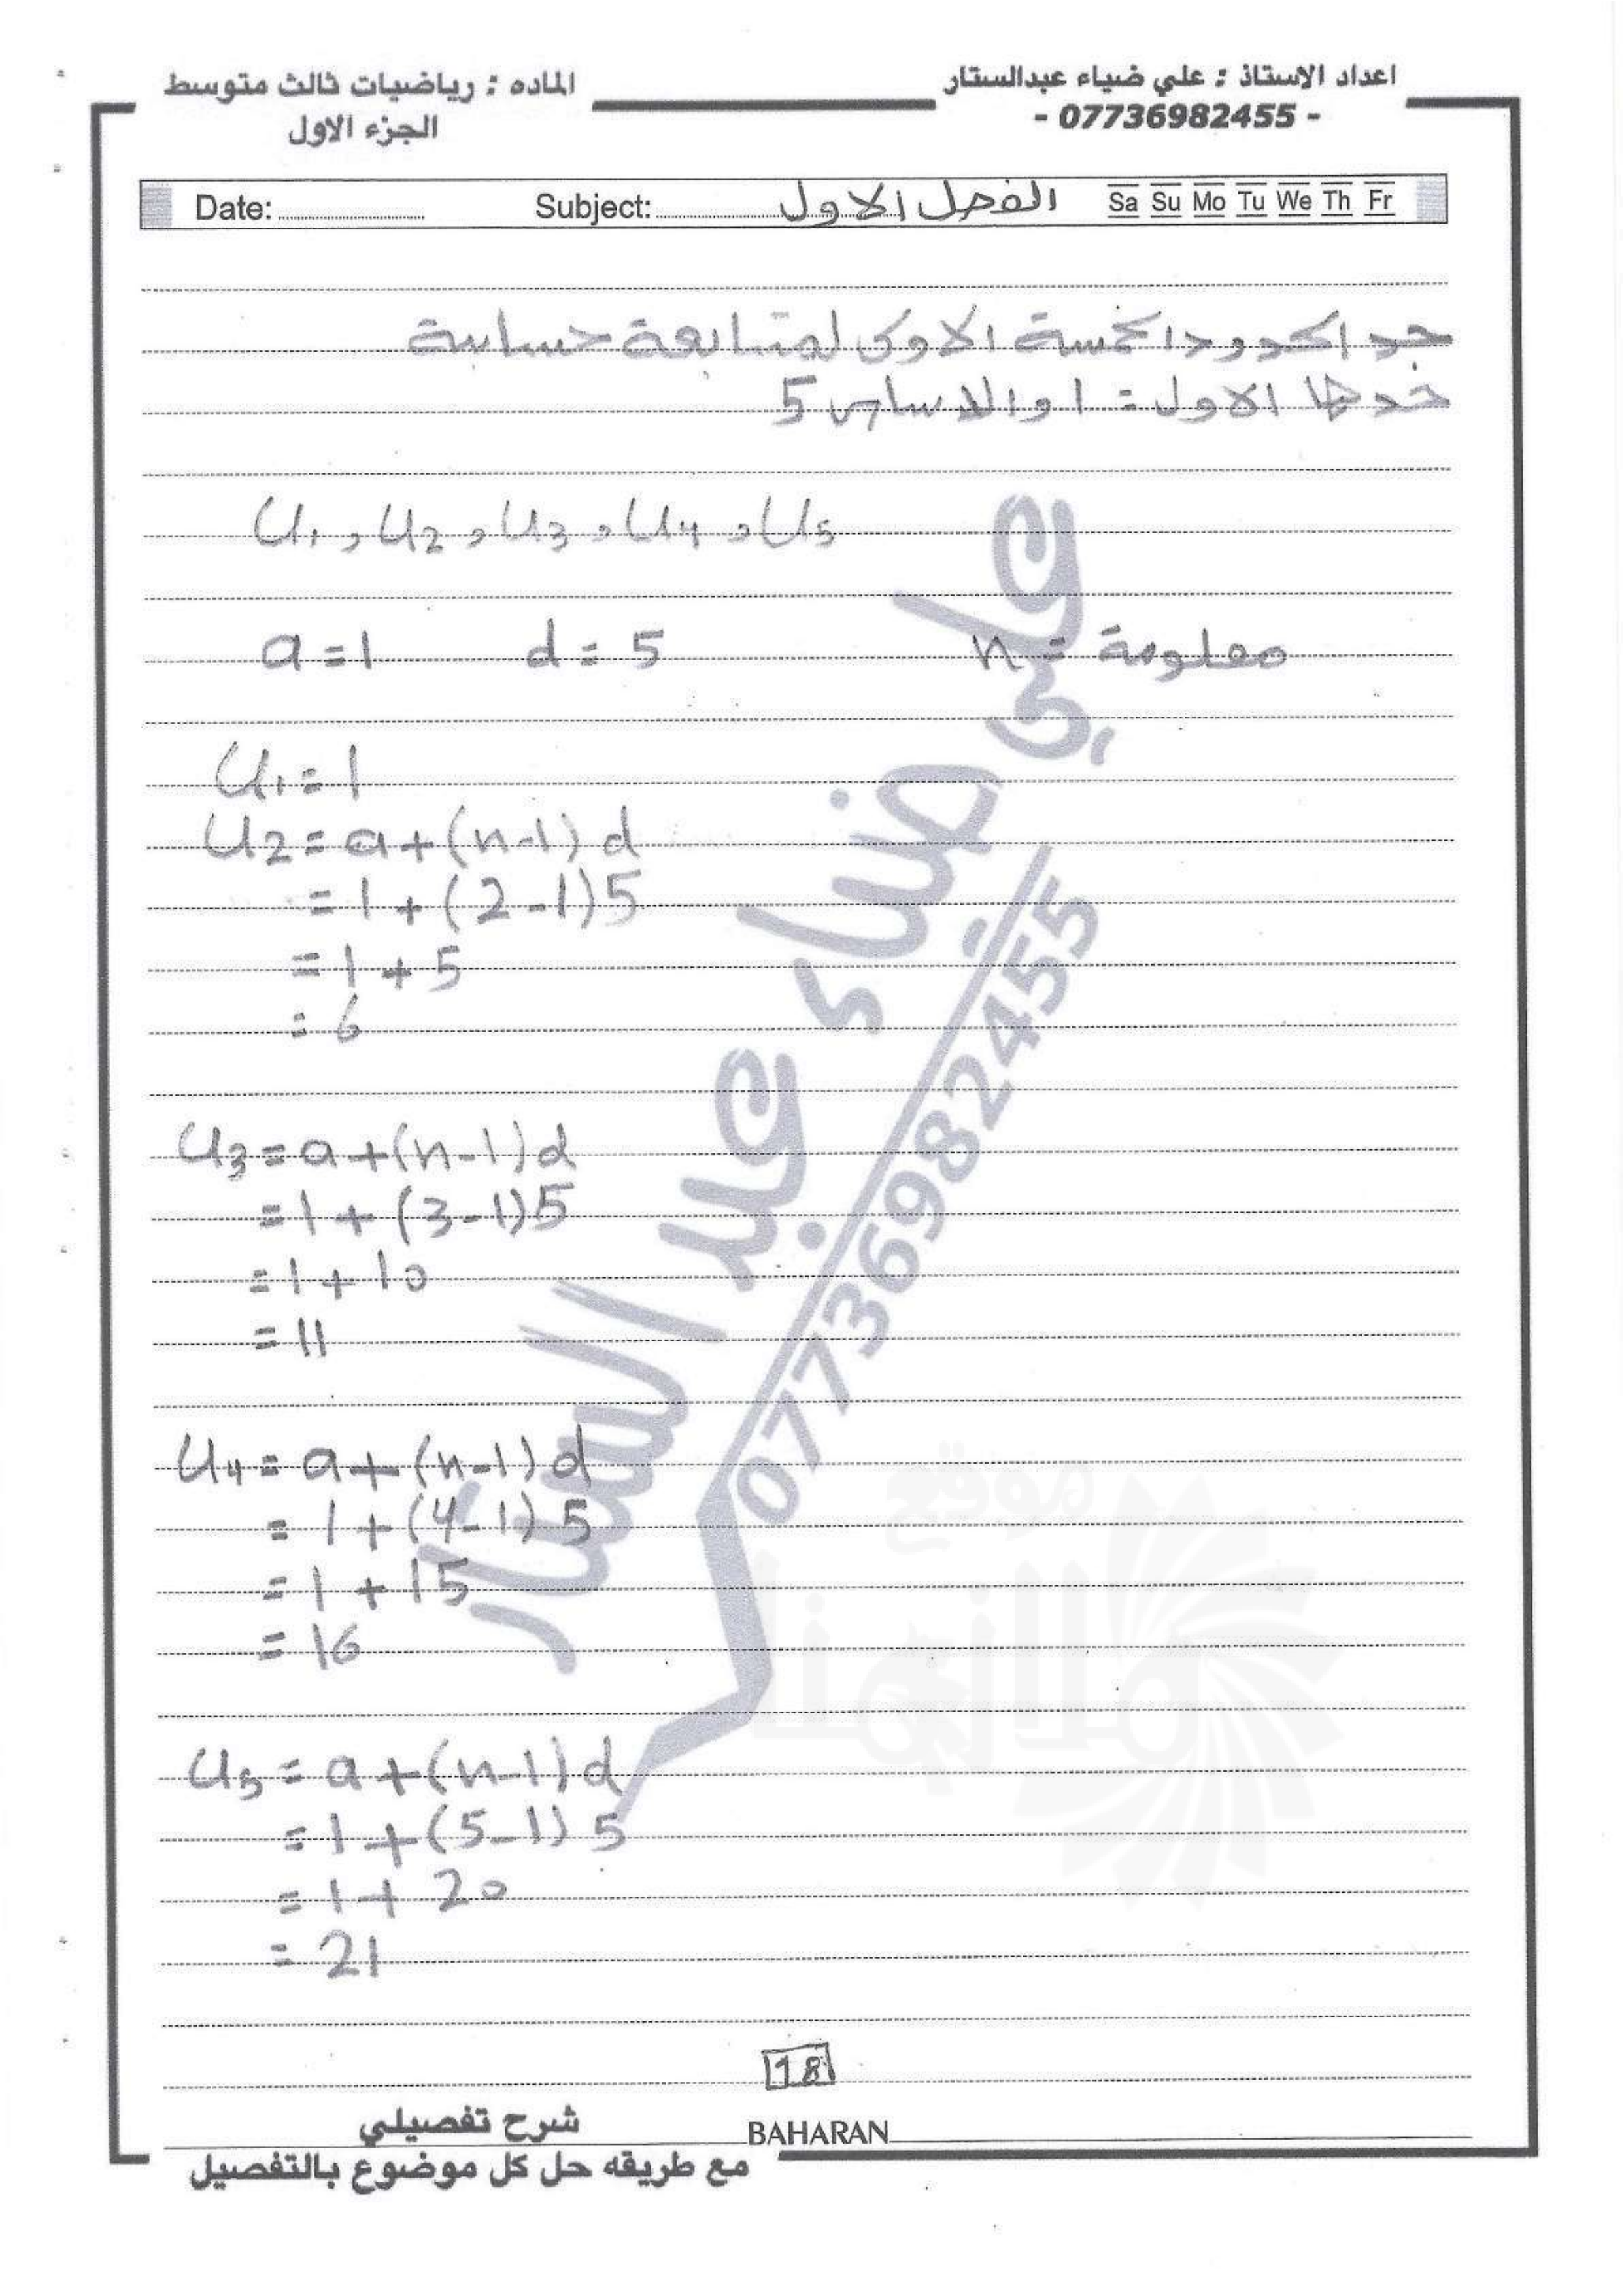 اعداد الاستاذ : علي ضياء عبدالستار
- 07736982455 -
الماده : رياضيات ثالث متوسط
الجزء الاول
Date: Subject: الفصل الاول Sa Su Mo Tu We Th Fr
جد الحدود الخمسة الاولى لمتتابعة حسابية
حدها الاول = 1 والاساس 5
U1 , U2 , U3 , U4 , U5
a = 1 d = 5 n = معلومة
U1 = 1
U2 = a + (n-1) d
= 1 + (2-1)5
= 1 + 5
= 6
U3 = a + (n-1) d
= 1 + (3-1)5
= 1 + 10
= 11
U4 = a + (n-1) d
= 1 + (4-1) 5
= 1 + 15
= 16
U5 = a + (n-1) d
= 1 + (5-1) 5
= 1 + 20
= 21
علي ضياء عبد الستار
07736982455
موقع
ملازمنا
18
BAHARAN
شرح تفصيلي
مع طريقه حل كل موضوع بالتفصيل